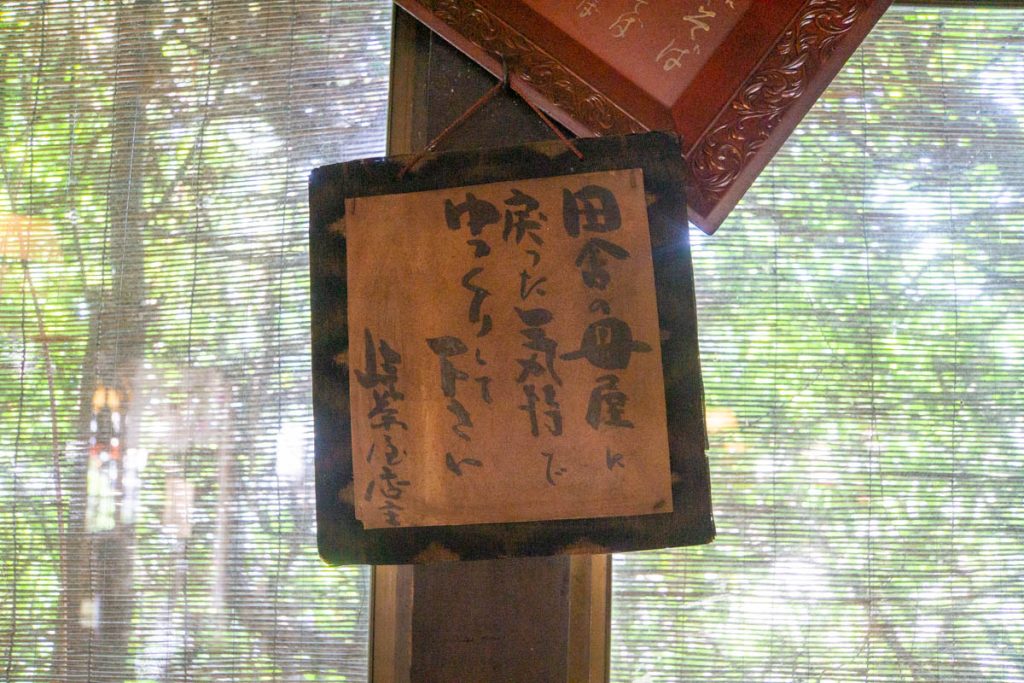 田舎の母屋に
戻った気持で
ゆっくりして
下さい
茶屋店主
そば